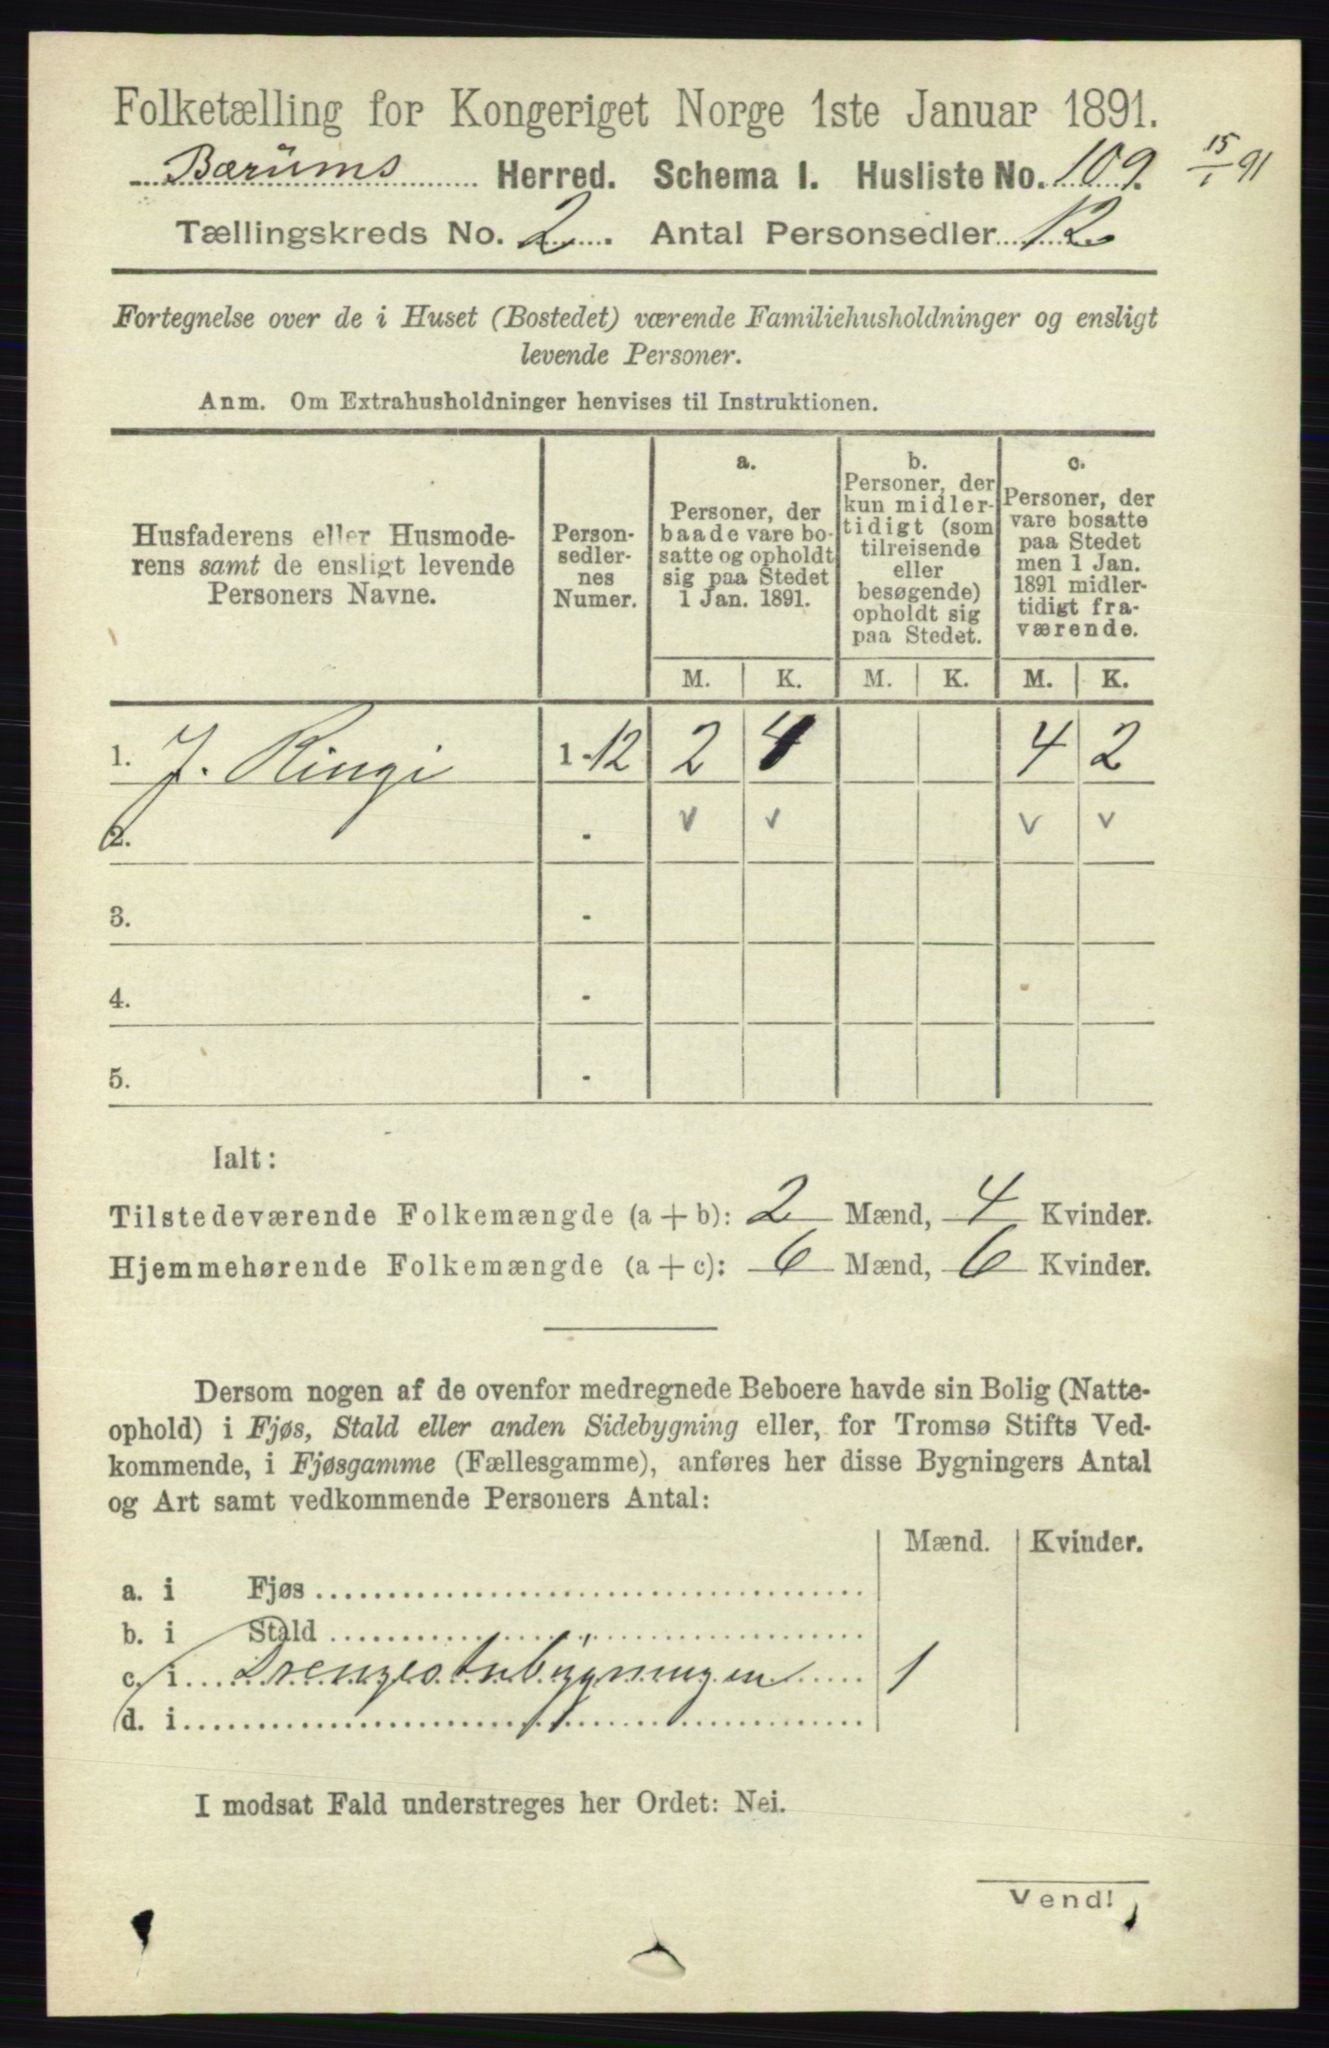 Folketælling for Kongeriget Norge 1ste Januar 1891.
Bærums Herred. Schema I. Husliste No. 109. 15/1 91
Tællingskreds No. 2. Antal Personsedler 12
Fortegnelse over de i Huset (Bostedet) værende Familiehusholdninger og ensligt
levende Personer.
Anm. Om Extrahusholdninger henvises til Instruktionen.
Husfaderens eller Husmode-
rens samt de ensligt levende
Personers Navne.
Person-
sedler-
nes
Numer.
a.
Personer, der
baade vare bo-
satte og opholdt
sig paa Stedet
1 Jan. 1891.
b.
Personer, der
kun midler-
tidigt (som
tilreisende
eller
besøgende)
opholdt sig
paa Stedet.
c.
Personer, der
vare bosatte
paa Stedet
men 1 Jan.
1891 midler-
tidigt fra-
værende.
M. K. M. K. M. K.
1. J. Ringi 1-12 2 4 4 2
2. - v v v v
3. -
4. -
5. -
Ialt:
Tilstedeværende Folkemængde (a + b): 2 Mænd, 4 Kvinder.
Hjemmehørende Folkemængde (a + c): 6 Mænd, 6 Kvinder.
Dersom nogen af de ovenfor medregnede Beboere havde sin Bolig (Natte-
ophold) i Fjøs, Stald eller anden Sidebygning eller, for Tromsø Stifts Ved-
kommende, i Fjøsgamme (Fællesgamme), anføres her disse Bygningers Antal
og Art samt vedkommende Personers Antal:
Mænd. Kvinder.
a. i Fjøs
b. i Stald
c. i Drengestubygningen 1
d. i
I modsat Fald understreges her Ordet: Nei.
Vend!